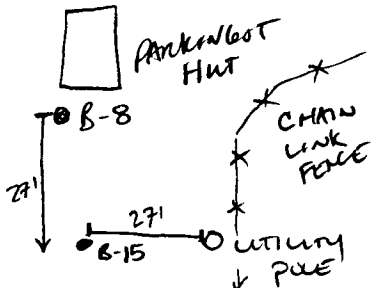 PARKINGLOT
HUT
B-8
CHAIN
LINK
FENCE
27'
27'
B-15
UTILITY
POLE